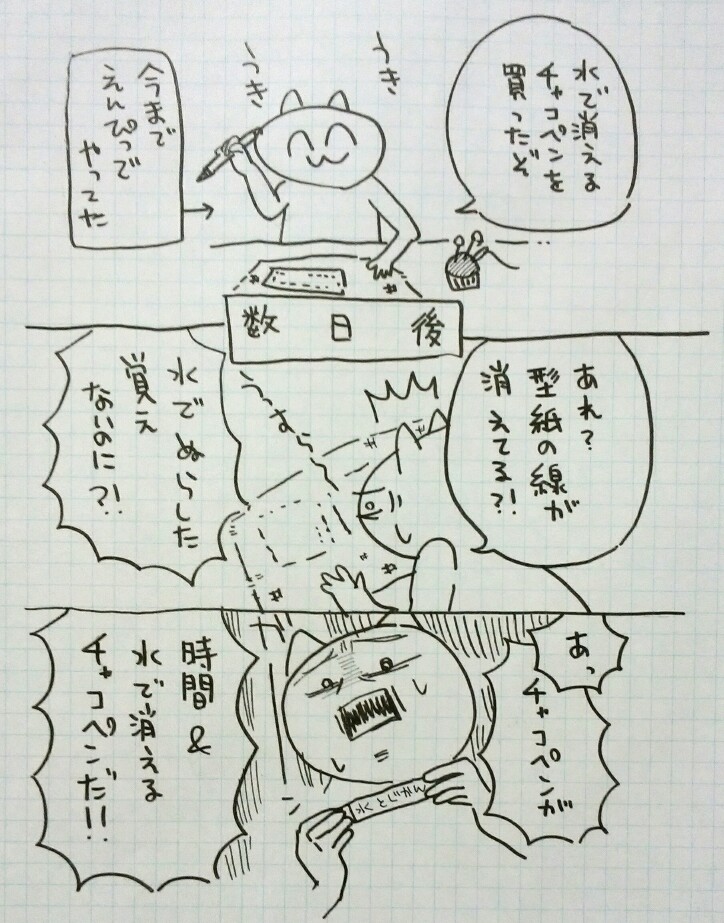 水で消える
チャコペンを
買ったぞ
うき
うき
今まで
えんぴつで
やってた
数日後
あれ?
型紙の線が
消えてる?!
水でぬらした
覚え
ないのに?!
あっ
チャコペンが
時間&
水で消える
チャコペンだ!!